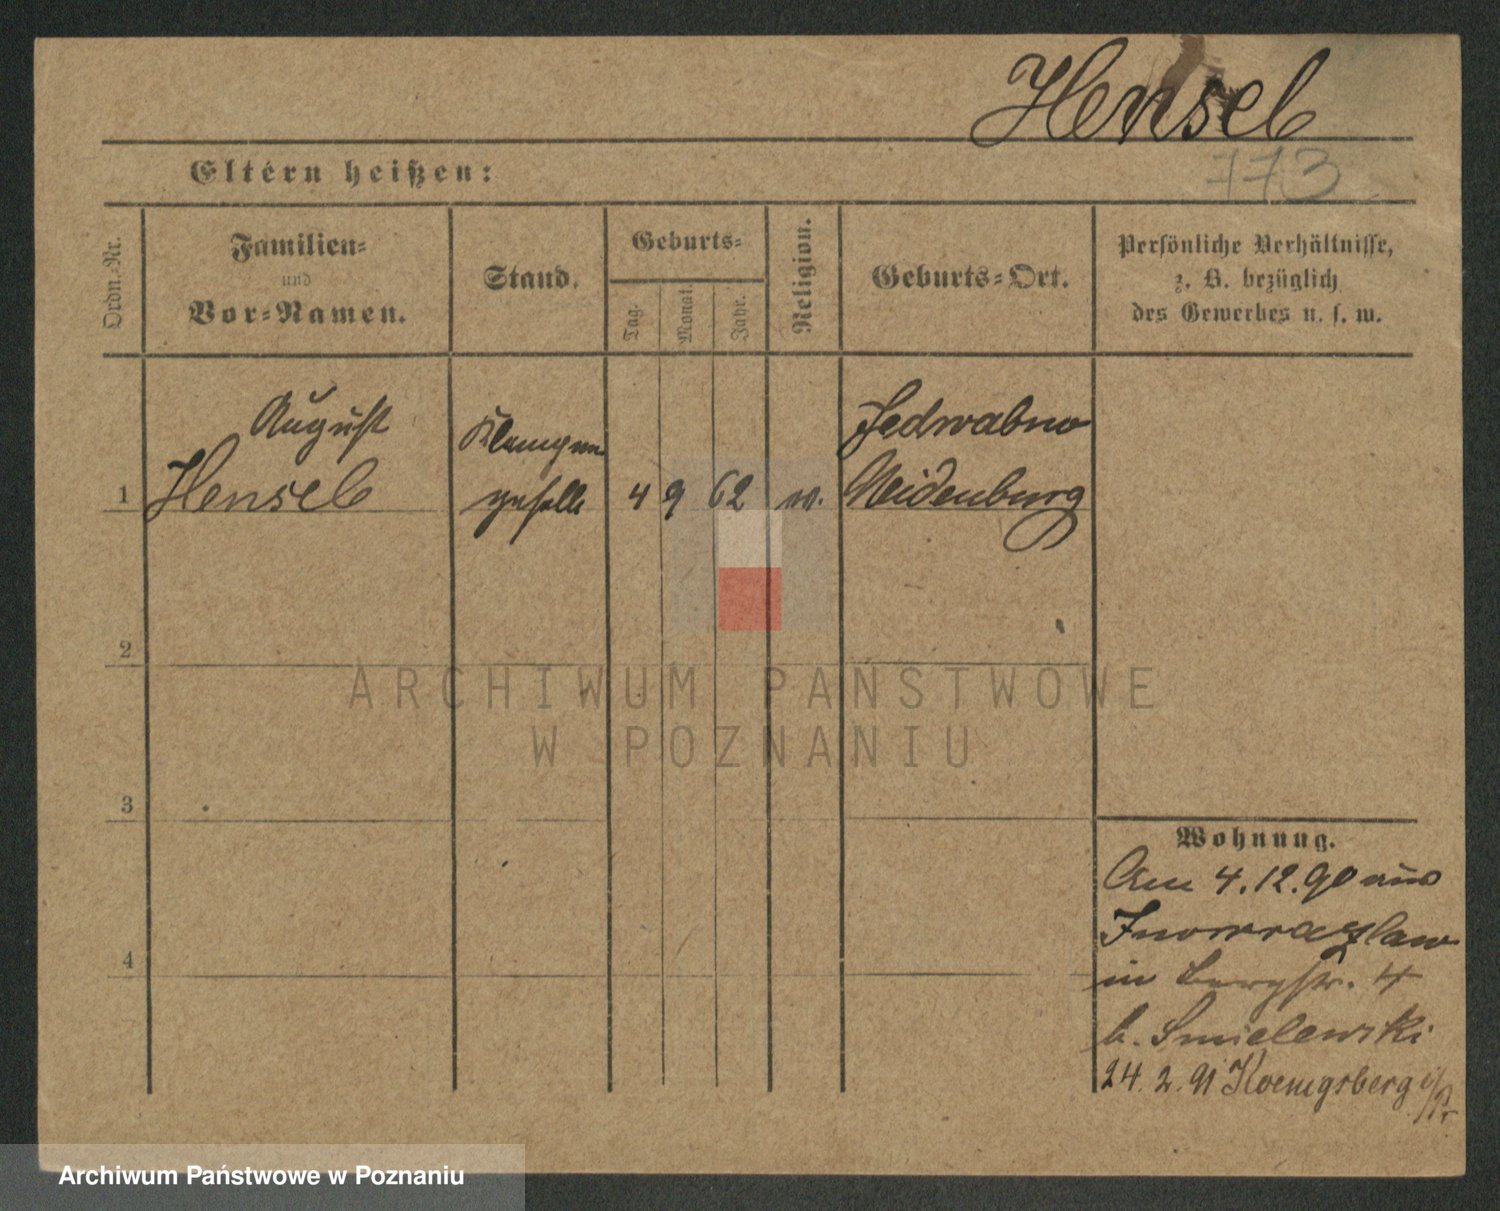 Hensel
773
Eltern heißen:
Ordn.-Nr.
Familien-
und
Vor-Namen.
Stand.
Geburts-
Tag.
Monat.
Jahr.
Religion.
Geburts-Ort.
Persönliche Verhältnisse,
z. B. bezüglich
des Gewerbes u. s. w.
August
Hensel
Klempner
geselle
1
4 9 62
Jedwabno
Neidenburg
2
3
4
ARCHIWUM PAŃSTWOWE
W POZNANIU
Wohnung.
Am 4.12.90 aus
Inowrazlaw
in Bergstr. 4
b. Smielewski
24.2.91 Koenigsberg i/Pr
Archiwum Państwowe w Poznaniu